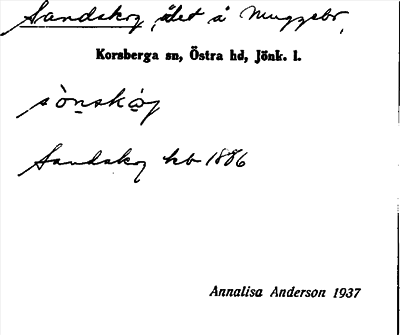 Sandskog, ålet å Muggebo,
Korsberga sn, Östra hd, Jönk. l.
sònskóg
Sandskog hb 1886
Annalisa Anderson 1937